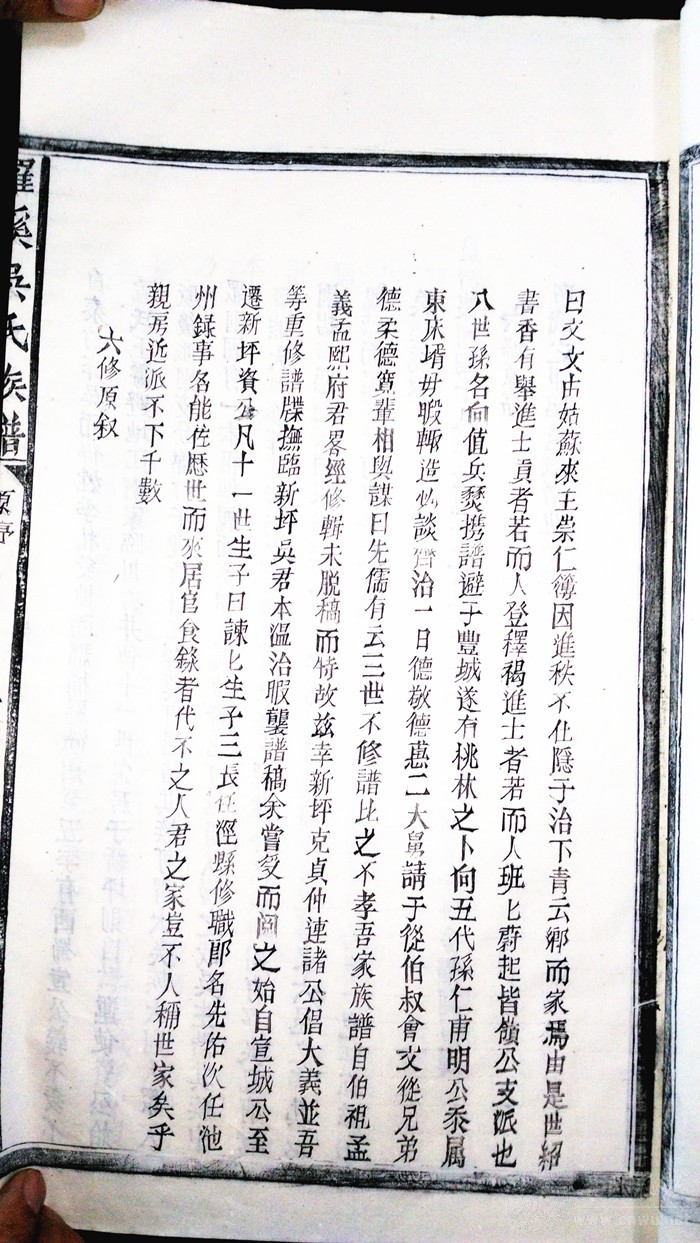 曰文文由姑蘇來主崇仁簿因進秩不仕隱于治下青云鄉而家焉由是世紹
書香有舉進士貢者若而人登釋褐進士者若而人班匕蔚起皆頠公支派也
八世孫名向值兵燹携譜避于豐城遂有桃林之卜向五代孫仁甫明公忝属
東床壻毋暇輙造必談齊治一日德敬德惠二大舅請于從伯叔會文從兄弟
德柔德寬輩相與謀曰先儒有云三世不修譜比之不孝吾家族譜自伯祖孟
義孟熙府君畧經修輯未脱稿而特故兹幸新坪克貞仲連諸公倡大義並吾
等重修譜牒撫臨新坪吳君本溫治暇襲譜稿余嘗受而閱之始自宣城公至
遷新坪資公凡十一世生子曰諫匕生子三長任涇縣修職郎名先佑次任池
州録事名能佐歷世而來居官食錄者代不乏人君之家豈不人稱世家矣乎
親房近派不下千數
六修原叙
羅溪吳氏族譜
原序
www.cnwu.net